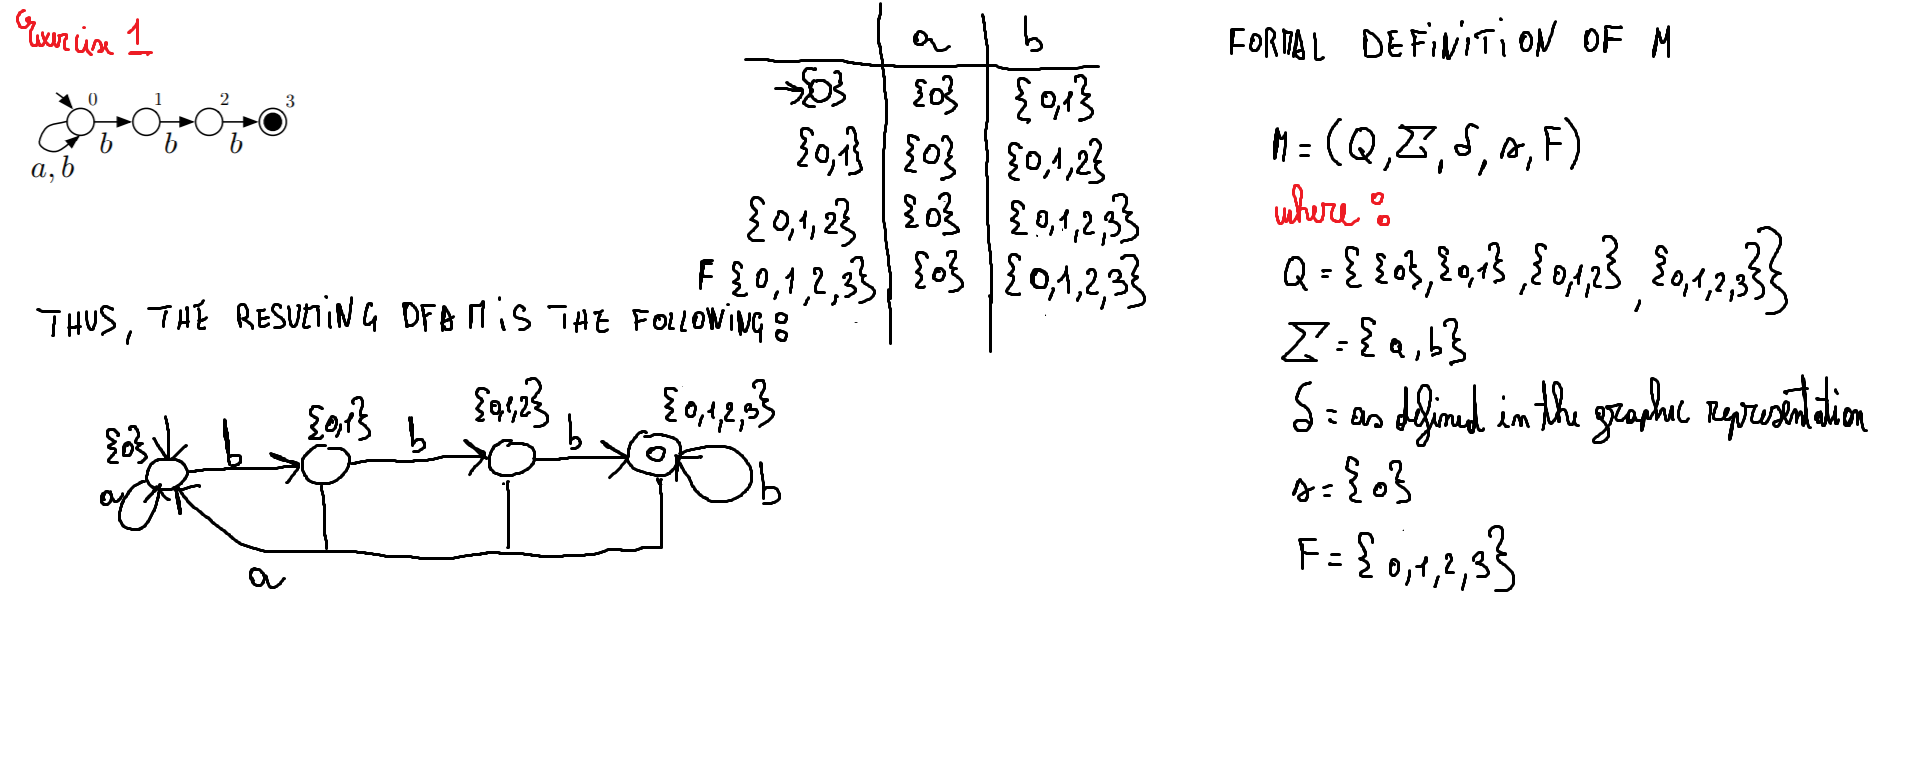 Exercise 1
0 1 2 3
b b b
a, b
a b
→{0} {0} {0,1}
{0,1} {0} {0,1,2}
{0,1,2} {0} {0,1,2,3}
F {0,1,2,3} {0} {0,1,2,3}
THUS, THE RESULTING DFA M IS THE FOLLOWING:
{0} {0,1} {0,1,2} {0,1,2,3}
b b b
a b
a
FORMAL DEFINITION OF M
M = (Q, Σ, δ, s, F)
where:
Q = { {0}, {0,1}, {0,1,2}, {0,1,2,3}}
Σ = {a, b}
δ = as defined in the graphic representation
s = {0}
F = {0,1,2,3}